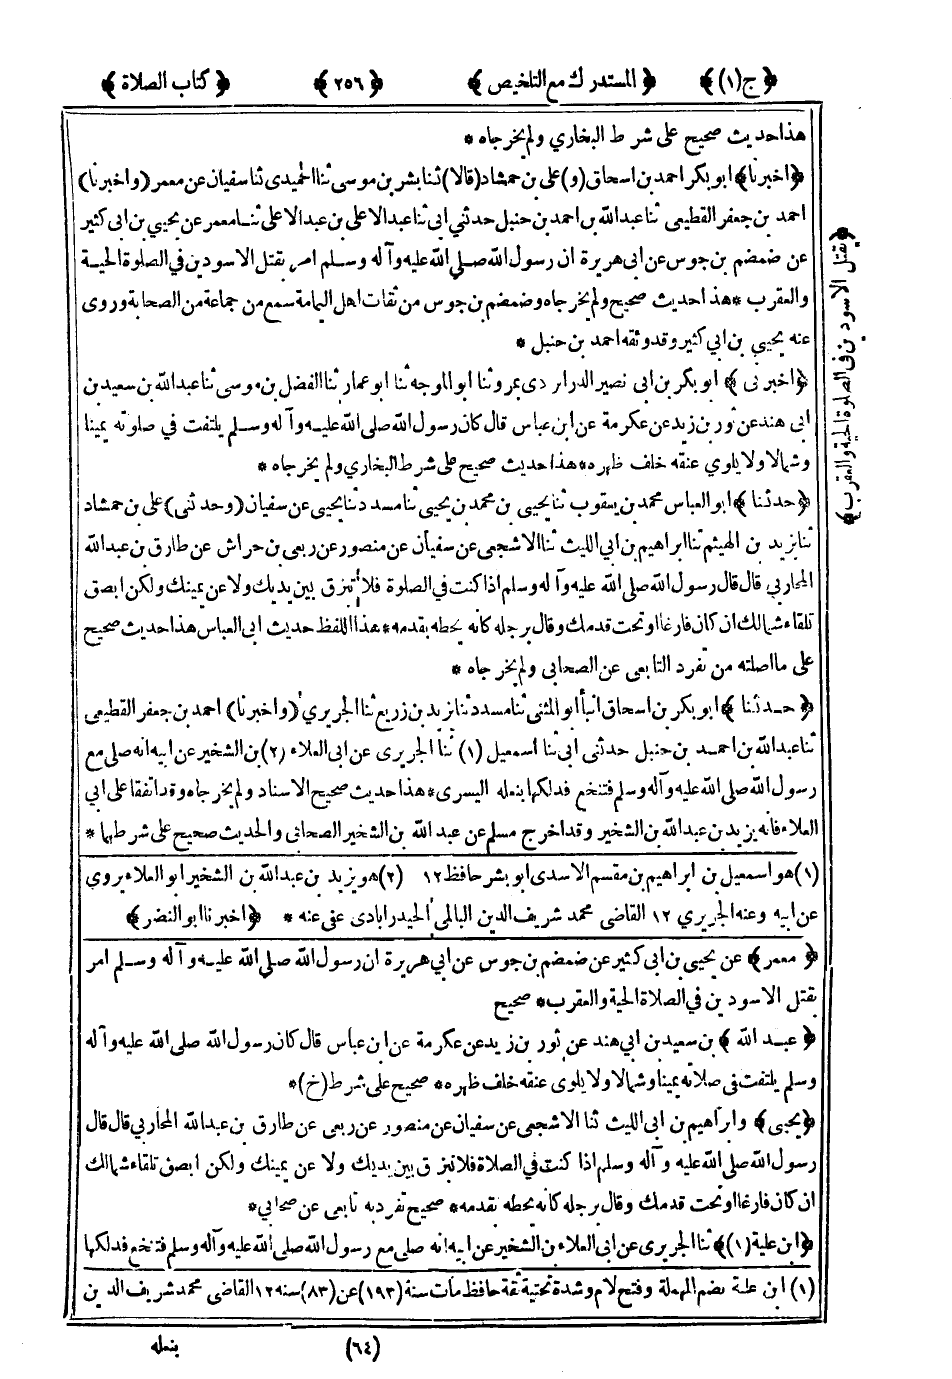 ﴿ ج (١) ﴾ ﴿ المستدرك مع التلخيص ﴾ ﴿ ٢٥٦ ﴾ ﴿ كتاب الصلاة ﴾
هذا حديث صحيح على شرط البخاري ولم يخرجاه *
﴿ اخبرنا ﴾ ابو بكر احمد بن اسحاق (و) على بن حمشاد (قالا) ثنا بشر بن موسى ثنا الحميدى ثنا سفيان عن معمر (واخبرنا)
احمد بن جعفر القطيعى ثنا عبدالله بن احمد بن حنبل حدثني ابى ثنا عبد الاعلى بن عبد الاعلى ثنا معمر عن يحيي بن ابى كثير
عن ضمضم بن جوس عن ابى هريرة ان رسول الله صلى الله عليه وآله وسلم امر بقتل الاسودين في الصلوة الحية
والعقرب * هذا حديث صحيح ولم يخرجاه وضمضم بن جوس من ثقات اهل اليمامة سمع من جماعة من الصحابة وروى
عنه يحيي بن ابي كثير وقد وثقه احمد بن حنبل *
﴿ اخبرنى ﴾ ابو بكر بن ابى نصير الدرابردى بمرو ثنا ابو الموجه ثنا ابو عمار ثنا الفضل بن موسى ثنا عبدالله بن سعيد بن
ابى هند عن ثور بن زيد عن عكرمة عن ابن عباس قال كان رسول الله صلى الله عليه وآله وسلم يلتفت في صلوته يمينا
وشمالا ولا يلوي عنقه خلف ظهره * هذا حديث صحيح على شرط البخاري ولم يخرجاه *
﴿ حدثنا ﴾ ابو العباس محمد بن يعقوب ثنا يحيي بن محمد بن يحيي ثنا مسدد ثنا يحيى عن سفيان (وحدثنى) على بن حمشاد
ثنا يزيد بن الهيثم ثنا ابراهيم بن ابي الليث ثنا الاشجعى عن سفيان عن منصور عن ربعى بن حراش عن طارق بن عبدالله
المحاربي قال قال رسول الله صلى الله عليه وآله وسلم اذا كنت في الصلوة فلا تبزق بين يديك ولا عن يمينك ولكن ابصق
تلقاء شمالك ان كان فارغا او تحت قدمك وقال برجله كانه يحطه بقدمه * هذا اللفظ حديث ابى العباس هذا حديث صحيح
على ما اصلته من تفرد التابعى عن الصحابى ولم يخرجاه *
﴿ حدثنا ﴾ ابو بكر بن اسحاق انبأ ابو المثنى ثنا مسدد ثنا يزيد بن زريع ثنا الجريري (واخبرنا) احمد بن جعفر القطيعى
ثنا عبدالله بن احمد بن حنبل حدثنى ابى ثنا اسمعيل (١) ثنا الجريرى عن ابى العلاء (٢) بن الشخير عن ابيه انه صلى مع
رسول الله صلى الله عليه وآله وسلم فتنخع فدلكها بنعله اليسرى * هذا حديث صحيح الاسناد ولم يخرجاه وقد اتفقا على ابي
العلاء فانه يزيد بن عبدالله بن الشخير وقد اخرج مسلم عن عبد الله بن الشخير الصحابى والحديث صحيح على شرطهما *
(١) هو اسمعيل بن ابراهيم بن مقسم الاسدى ابو بشر حافظ ١٢ (٢) هو يزيد بن عبدالله بن الشخير ابو العلاء يروي
عن ابيه وعنه الجريري ١٢ القاضى محمد شريف الدين البالمى الحيدرابادى عفى عنه * ﴿ اخبرنا ابو النضر ﴾
﴿ معمر ﴾ عن يحيى بن ابى كثير عن ضمضم بن جوس عن ابي هريرة ان رسول الله صلى الله عليه وآله وسلم امر
بقتل الاسودين في الصلاة الحية والعقرب * صحيح
﴿ عبد الله ﴾ بن سعيد بن ابي هند عن ثور بن زيد عن عكرمة عن ابن عباس قال كان رسول الله صلى الله عليه وآله
وسلم يلتفت في صلاته يمينا وشمالا ولا يلوى عنقه خلف ظهره * صحيح على شرط (خ) *
﴿ يحيى ﴾ وابراهيم بن ابى الليث ثنا الاشجعى عن سفيان عن منصور عن ربعى عن طارق بن عبدالله المحاربي قال قال
رسول الله صلى الله عليه وآله وسلم اذا كنت في الصلاة فلا تبزق بين يديك ولا عن يمينك ولكن ابصق تلقاء شمالك
ان كان فارغا او تحت قدمك وقال برجله كانه يحطه بقدمه * صحيح تفرد به تابعى عن صحابي *
﴿ ابن علية (١) ﴾ ثنا الجريرى عن ابى العلاء بن الشخير عن ابيه انه صلى مع رسول الله صلى الله عليه وآله وسلم فتنخع فدلكها
(١) ابن علية بضم المهملة وفتح لام وشدة تحتية ثقة حافظ مات سنة (١٩٣) عن (٨٣) سنه ١٢ القاضى محمد شريف الدين
(٦٤) بنعله
﴿ بقتل الاسودين في الصلوة الحية والعقرب ﴾